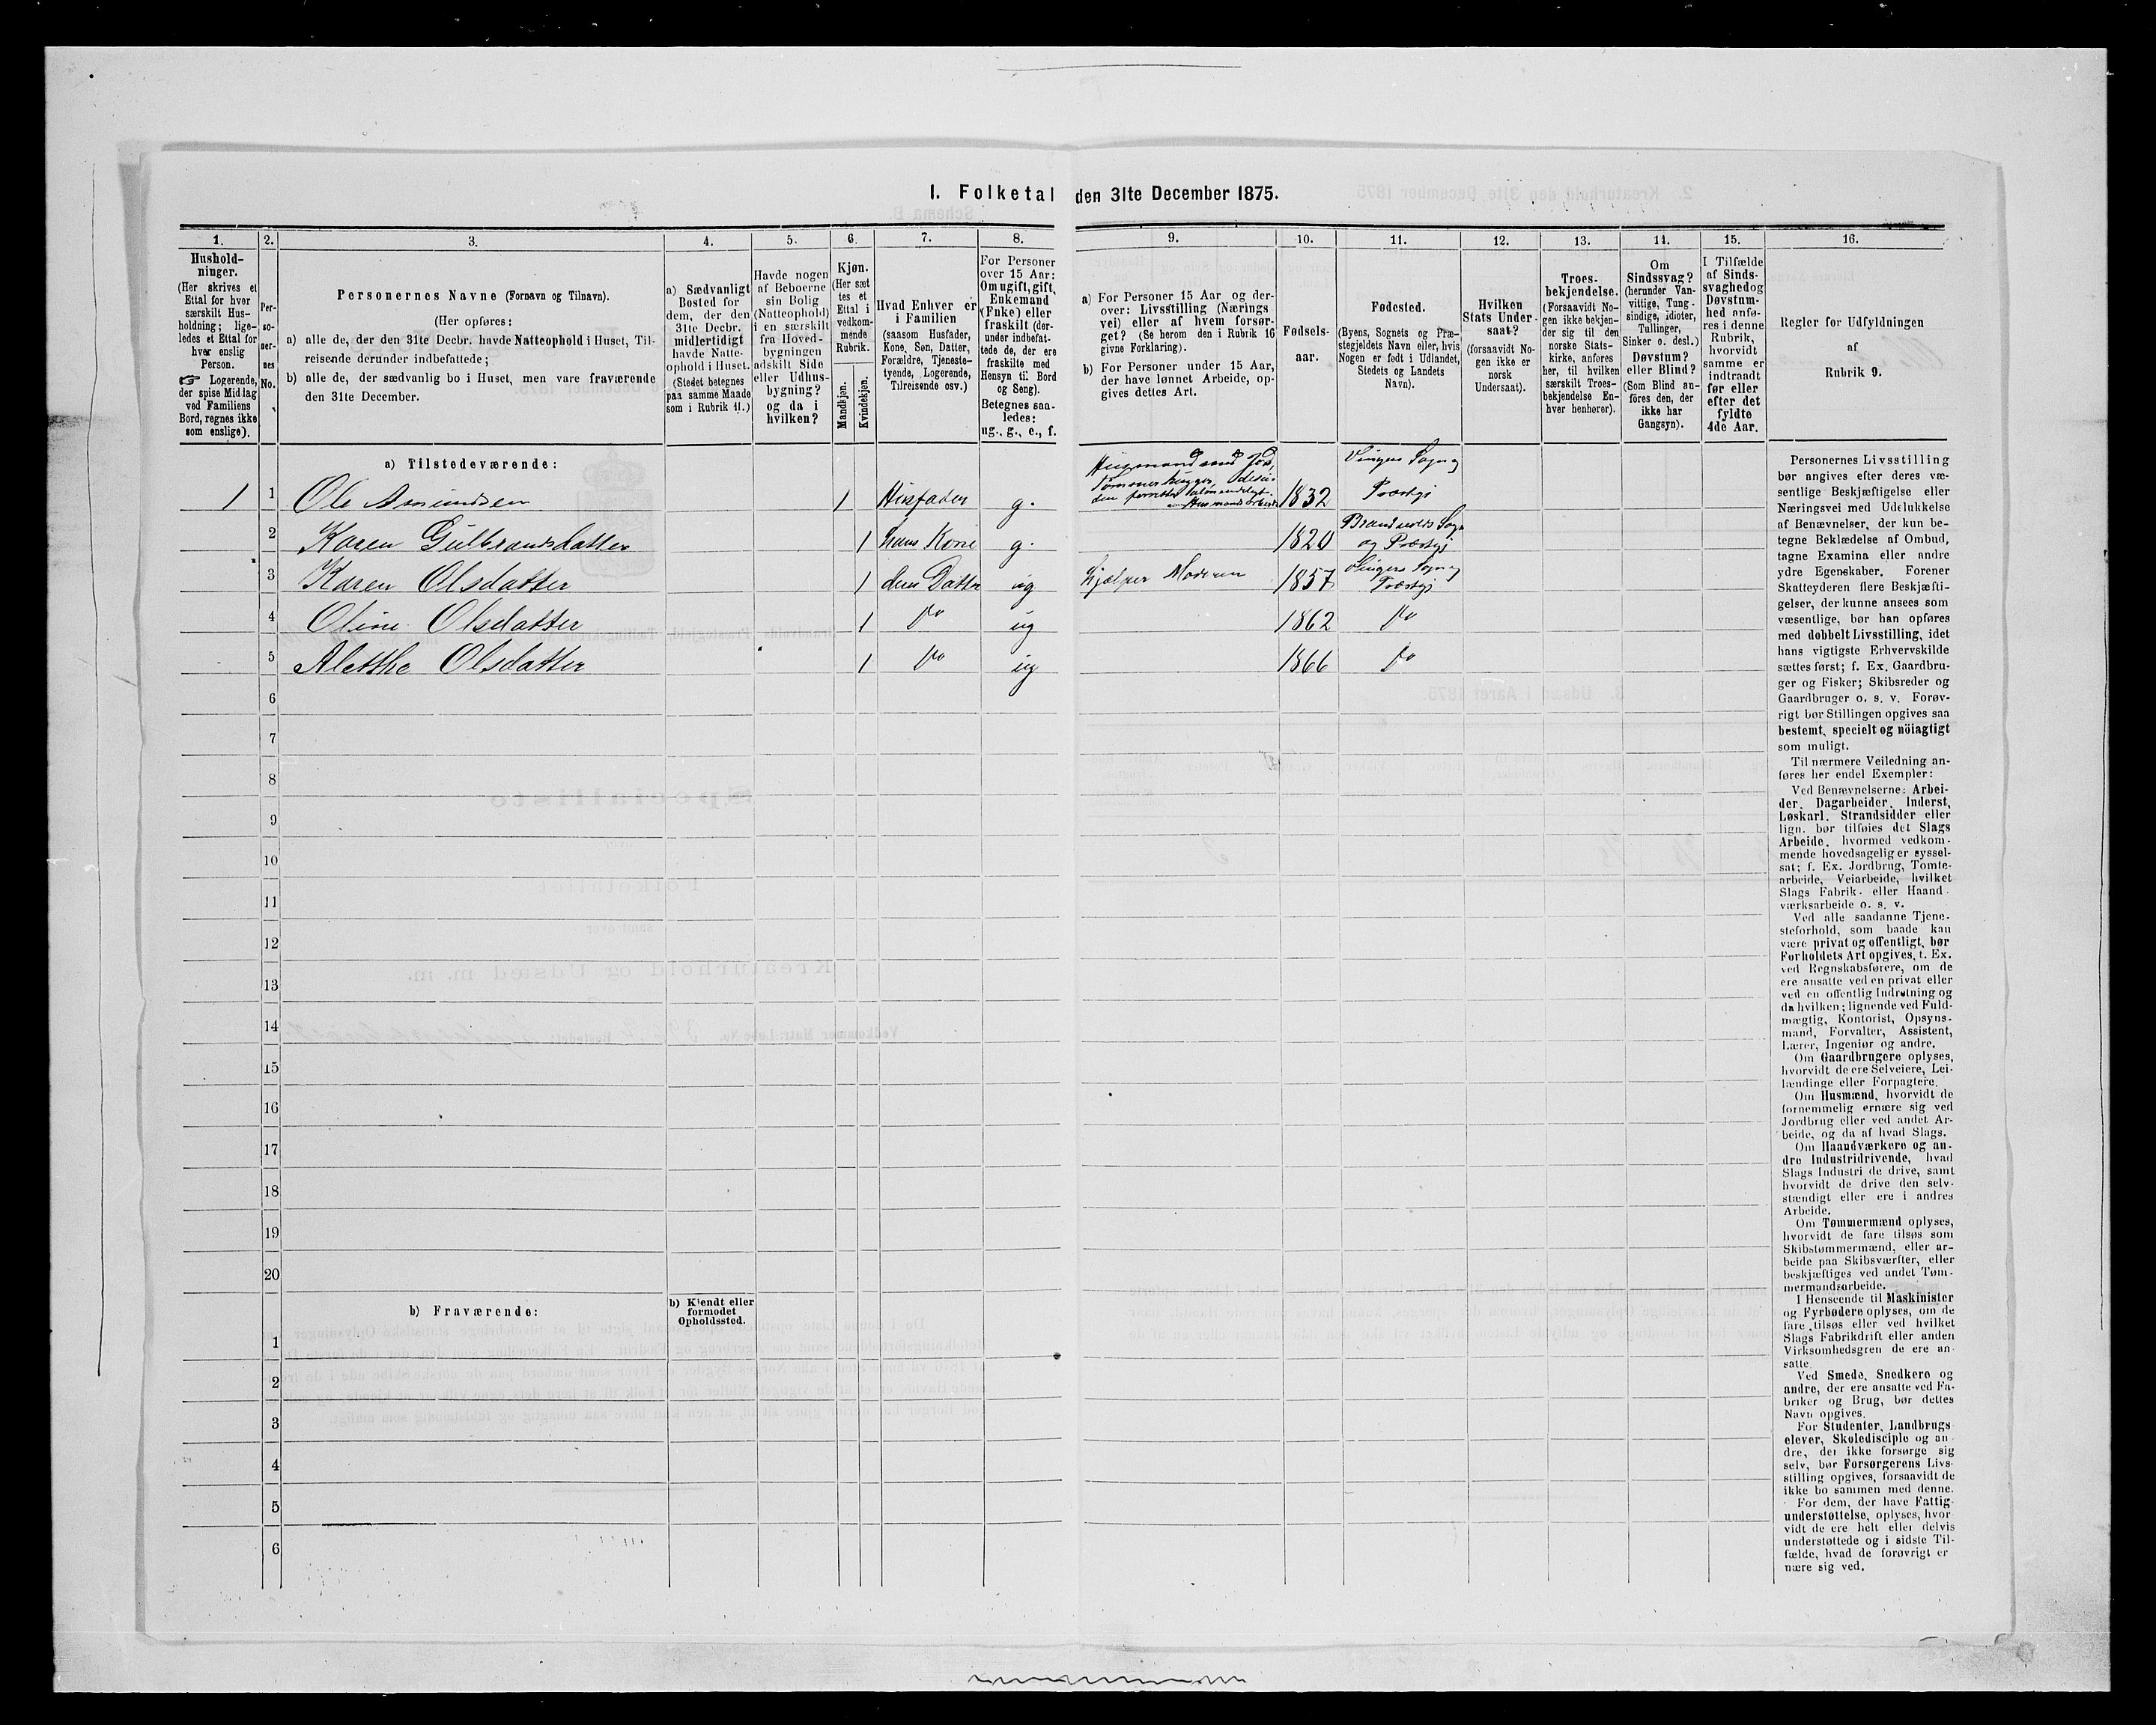 I. Folketal den 31te December 1875.
1.
2.
3.
4.
5.
6.
7.
8.
9.
10.
11.
12.
13.
14.
15.
16.
Hushold-
ninger.
(Her skrives et
Ettal for hver
særskilt Hus-
holdning; lige-
ledes et Ettal for
hver enslig
Person.
☞ Logerende,
der spise Midlag
ved Familiens
Bord, regnes ikke
som enslige).
Per-
so-
ner-
nes
No.
Personernes Navne (Fornavn og Tilnavn).
(Her opføres:
a) alle de, der den 31te Decbr. havde Natteophold i Huset, Til-
reisende derunder indbefattede;
b) alle de, der sædvanlig bo i Huset, men vare fraværende
den 31te December.
a) Sædvanligt
Bosted for
dem, der den
31te Decbr.
midlertidigt
havde Natte-
ophold i Huset.
(Stedet betegnes
paa samme Maade
som i Rubrik 11.)
Havde nogen
af Beboerne
sin Bolig
(Natteophold)
i en særskilt
fra Hoved-
bygningen
adskilt Side
eller Udhus-
bygning?
og da i
hvilken?
Kjøn.
(Her sæt
tes et
Ettal i
vedkom-
mende
Rubrik.
Mandkjøn.
Kvindekjøn.
Hvad Enhver er
i Familien
(saasom Husfader,
Kone, Søn, Datter,
Forældre, Tjeneste-
tyende, Logerende,
Tilreisende osv.)
For Personer
over 15 Aar:
Om ugift, gift,
Enkemand
(Enke) eller
fraskilt (der-
under indbefat-
tede de, der ere
fraskilte med
Hensyn til Bord
og Seng).
Betegnes saa-
ledes:
ug., g., e., f.
a) For Personer 15 Aar og der-
over: Livsstilling (Nærings
vei) eller af hvem forsør-
get? (Se herom den i Rubrik 16
givne Forklaring).
b) For Personer under 15 Aar,
der have lønnet Arbeide, op-
gives dettes Art.
Fødsels-
aar.
Fødested.
(Byens, Sognets og Præ-
stegjeldets Navn eller, hvis
Nogen er født i Udlandet,
Stedets og Landets
Navn).
Hvilken
Stats Under-
saat?
(forsaavidt No-
gen ikke er
norsk
Undersaat).
Troes-
bekjendelse.
(Forsaavidt No-
gen ikke bekjen-
der sig til den
norske Stats-
kirke, anføres
her, til hvilken
særskilt Troes-
bekjendelse En-
hver henhører).
Om
Sindssvag?
(herunder Van-
vittige, Tung-
sindige, Idioter,
Tullinger,
Sinker o. desl.)
Døvstum?
eller Blind?
(Som Blind an-
føres den, der
ikke har
Gangsyn).
I Tilfælde
af Sinds-
svaghed og
Døvstum-
hed anfø-
res i denne
Rubrik,
hvorvidt
samme er
indtraadt
før eller
efter det
fyldte
4de Aar.
Regler for Udfyldningen
af
Rubrik 9.
a) Tilstedeværende:
1 1 Ole Amundsen 1 Husfader g. Husmand med Jord, 1832 Vinger Sogn og Præstgj
2 Karen Gulbrandsdatter 1 hans Kone g. 1820 Brandvolds Sogn og Præstgj
3 Karen Olsdatter 1 deres Datter ug hjælper Moderen 1857 Vinger Sogn og Præstgj
4 Oline Olsdatter 1 Do ug 1862 Do
5 Alethe Olsdatter 1 Do ug 1866 Do
6
7
8
9
10
11
12
13
14
15
16
17
18
19
20
b) Fraværende:
b) Kjendt eller
formodet
Opholdssted.
1
2
3
4
5
6
Personernes Livsstilling
bør angives efter deres væ-
sentlige Beskjæftigelse eller
Næringsvei med Udelukkelse
af Benævnelser, der kun be-
tegne Beklædelse af Ombud,
tagne Examina eller andre
ydre Egenskaber. Forener
Skatteyderen flere Beskjæfti-
gelser, der kunne ansees som
væsentlige, bør han opføres
med dobbelt Livsstilling, idet
hans vigtigste Erhvervskilde
sættes først; f. Ex. Gaardbru-
ger og Fisker; Skibsreder og
Gaardbruger o. s. v. Forøv-
rigt bør Stillingen opgives saa
bestemt, specielt og nöiagtigt
som muligt.
Til nærmere Veiledning an-
føres her endel Exempler:
Ved Benævnelserne: Arbei-
der, Dagarbeider, Inderst,
Løskarl, Strandsidder eller
lign. bør tilføies det Slags
Arbeide, hvormed vedkom-
mende hovedsagelig er syssel-
sat; f. Ex. Jordbrug, Tomte-
arbeide, Veiarbeide, hvilket
Slags Fabrik- eller Haand-
værksarbeide o. s. v.
Ved alle saadanne Tjene-
steforhold, som baade kan
være privat og offentligt, bør
Forholdets Art opgives, t. Ex.
ved Regnskabsførere, om de
ere ansatte ved en privat eller
ved en offentlig Indretning og
da hvilken; lignende ved Fuld-
mægtig, Kontorist, Opsyns-
mand, Forvalter, Assistent,
Lærer, Ingeniør og andre.
Om Gaardbrugere oplyses,
hvorvidt de ere Selveiere, Lei-
lændinge eller Forpagtere.
Om Husmænd, hvorvidt de
fornemmelig ernære sig ved
Jordbrug eller ved andet Ar-
beide, og da af hvad Slags.
Om Haandværkere og an-
dre Industridrivende, hvad
Slags Industri de drive, samt
hvorvidt de drive den selv-
stændigt eller ere i andres
Arbeide.
Om Tømmermænd oplyses,
hvorvidt de fare tilsøs som
Skibstømmermænd, eller ar-
beide paa Skibsværfter, eller
beskjæftiges ved andet Tøm-
mermandsarbeide.
I Henseende til Maskinister
og Fyrbødere oplyses, om de
fare tilsøs eller ved hvilket
Slags Fabrikdrift eller anden
Virksomhedsgren de ere an-
satte.
Ved Smede, Snedkere og
andre, der ere ansatte ved Fa-
briker og Brug, bør dettes
Navn opgives.
For Studenter, Landbrugs-
elever, Skoledisciple og an-
dre, der ikke forsørge sig
selv, bør Forsørgerens Livs-
stilling opgives, forsaavidt de
ikke bo sammen med denne.
For dem, der have Fattig-
understøttelse, oplyses, hvor-
vidt de ere helt eller delvis
understøttede og i sidste Til-
fælde, hvad de forøvrigt er-
nære sig ved.